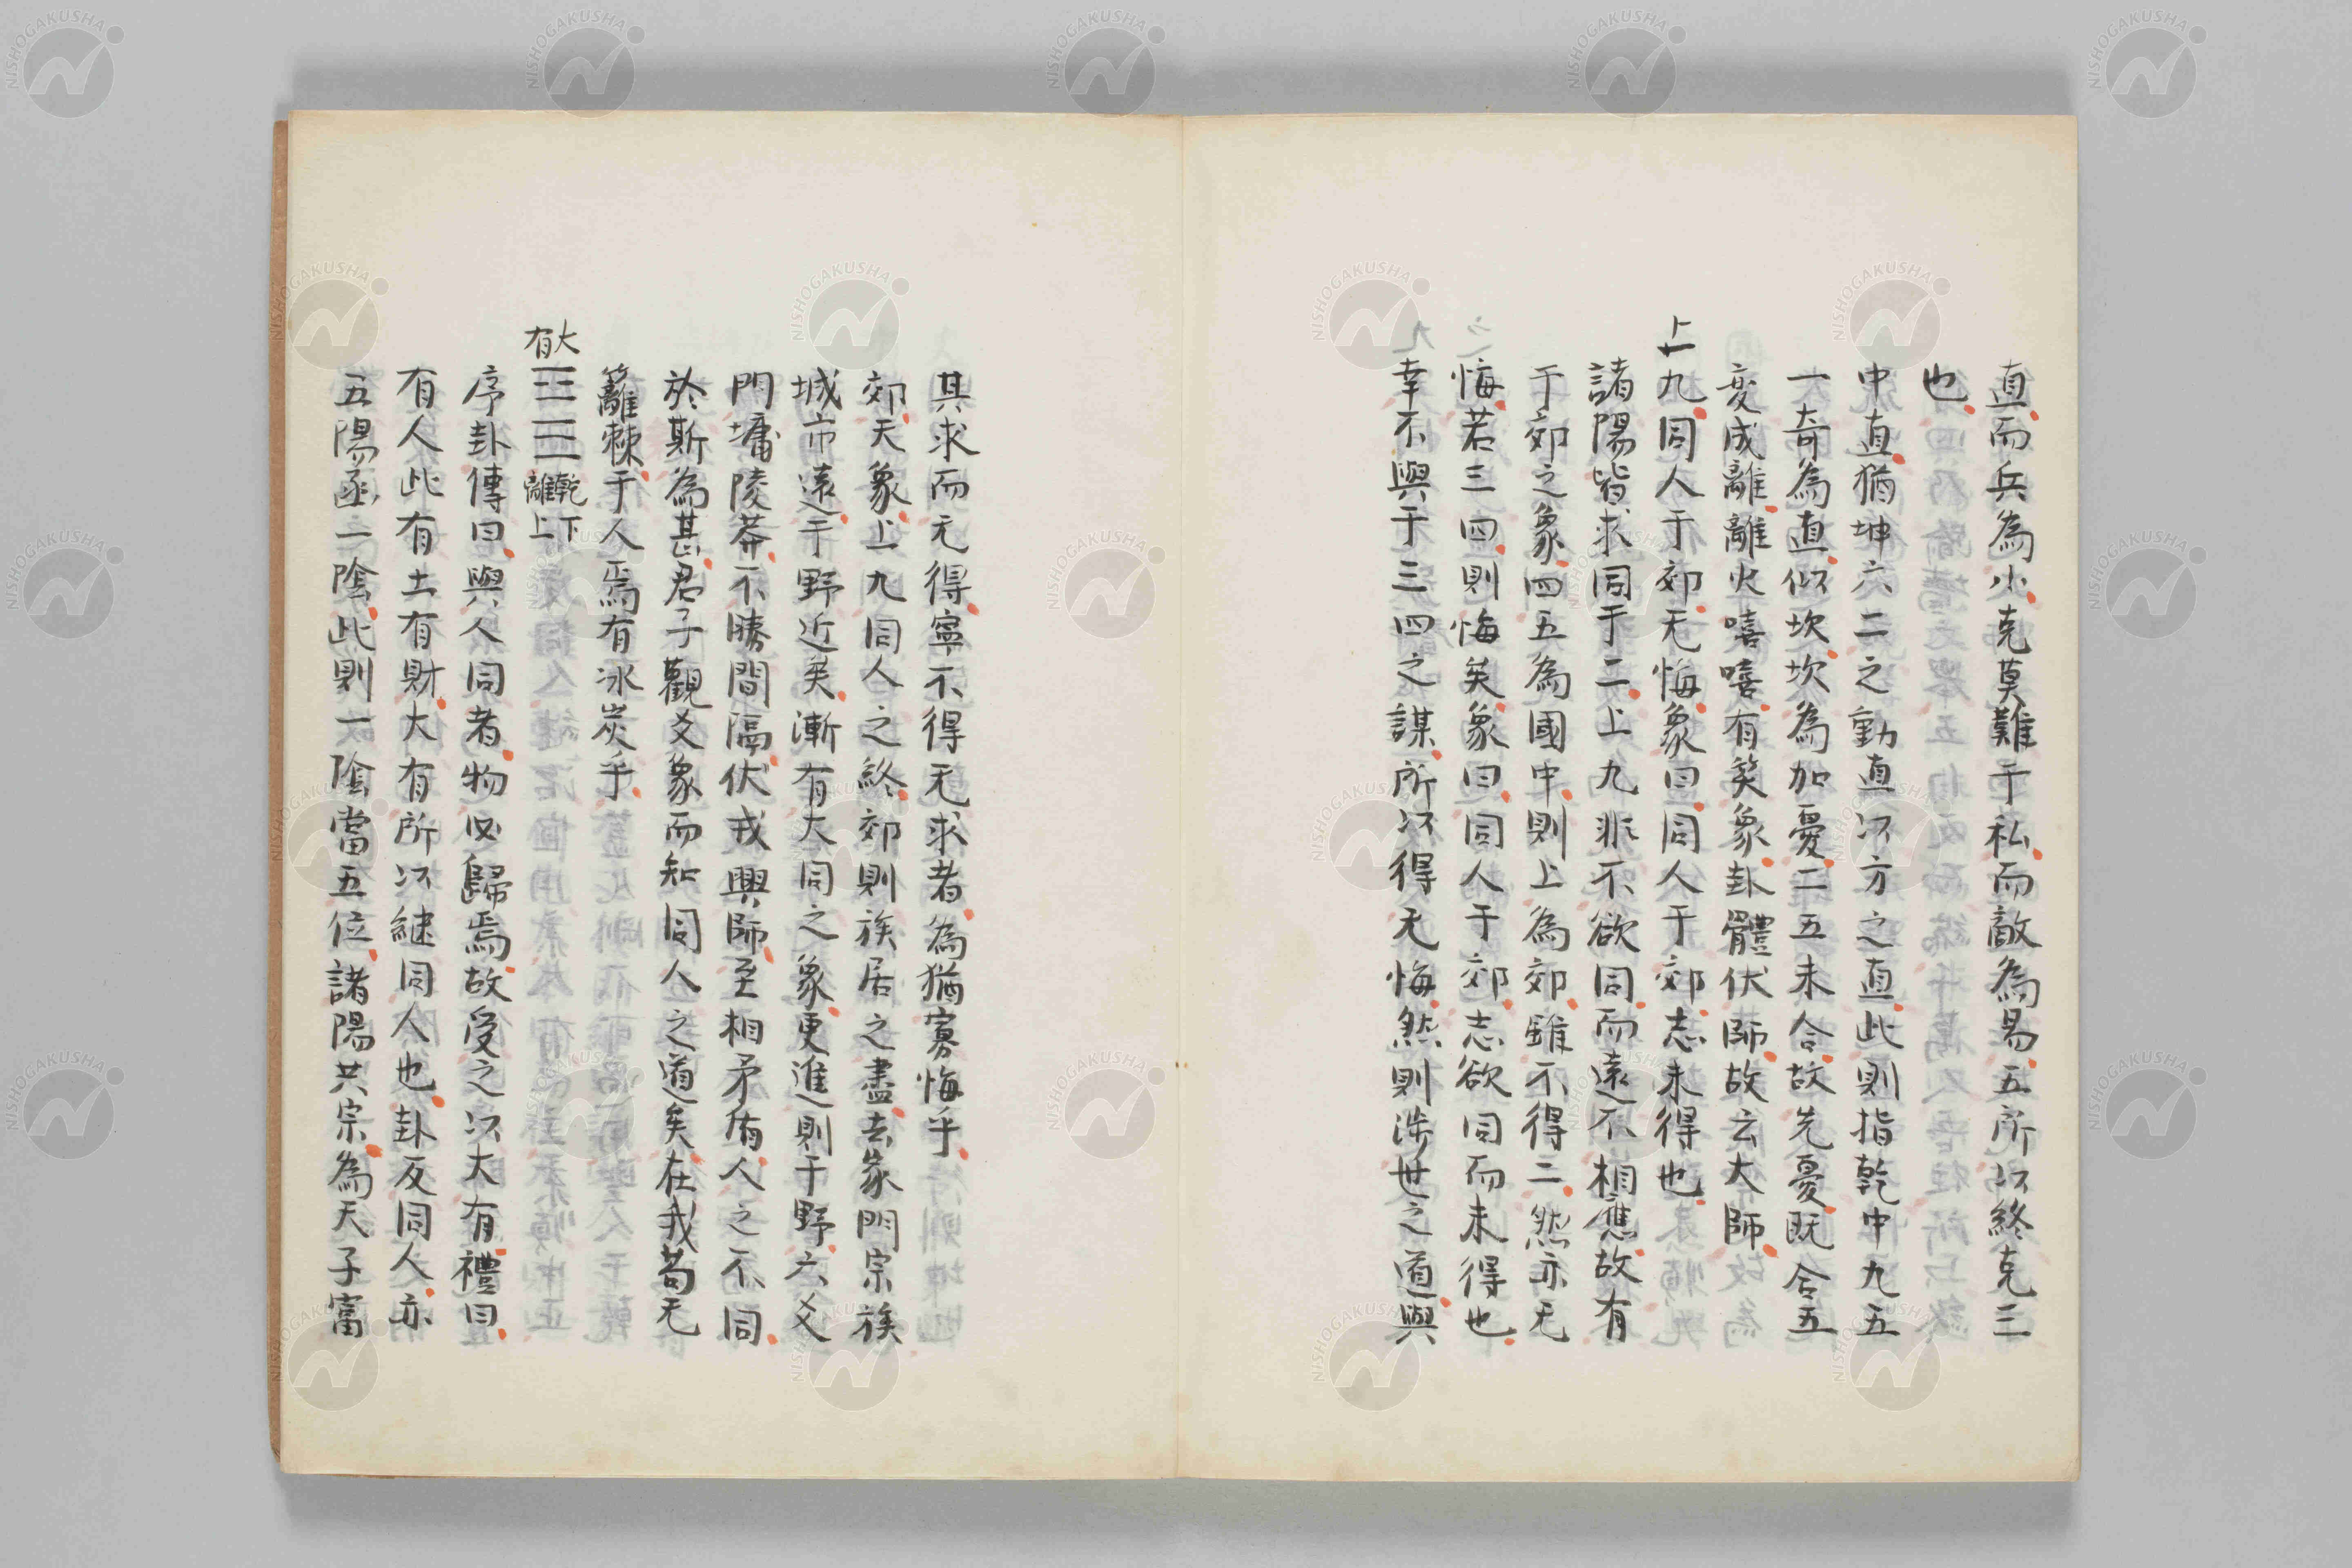 直而兵為小克莫難于私而敵為易五所以終克三
也
中直猶坤六二之動直以方之直此則指乾中九五
一奇為直似坎坎為加憂二五未合故先憂既合五
変成離離火嘻嘻有笑象卦體伏師故云大師
上九同人于郊无悔象曰同人于郊志未得也
諸陽皆求同于二上九非不欲同而遠不相應故有
于郊之象四五為國中則上為郊雖不得二然亦无
悔若三四則悔矣象曰同人于郊志欲同而未得也
幸不與于三四之謀所以得无悔然則涉世之道與
其求而无得寧不得无求者為猶寡悔乎
郊天象上九同人之終郊則族居之盡去象門宗族
城市遠于野近矣漸有大同之象更進則于野六爻
門墉陵莽不勝間隔伏戎興師至相矛盾人之不同
於斯為甚君子觀爻象而知同人之道矣在我苟无
籬棘于人焉有冰炭乎
大有 乾下離上
序卦傳曰與人同者物必歸焉故受之以大有禮曰
有人此有土有財大有所以継同人也卦反同人亦
五陽函一陰此則一陰當五位諸陽共宗為天子富
NISHOGAKUSHA